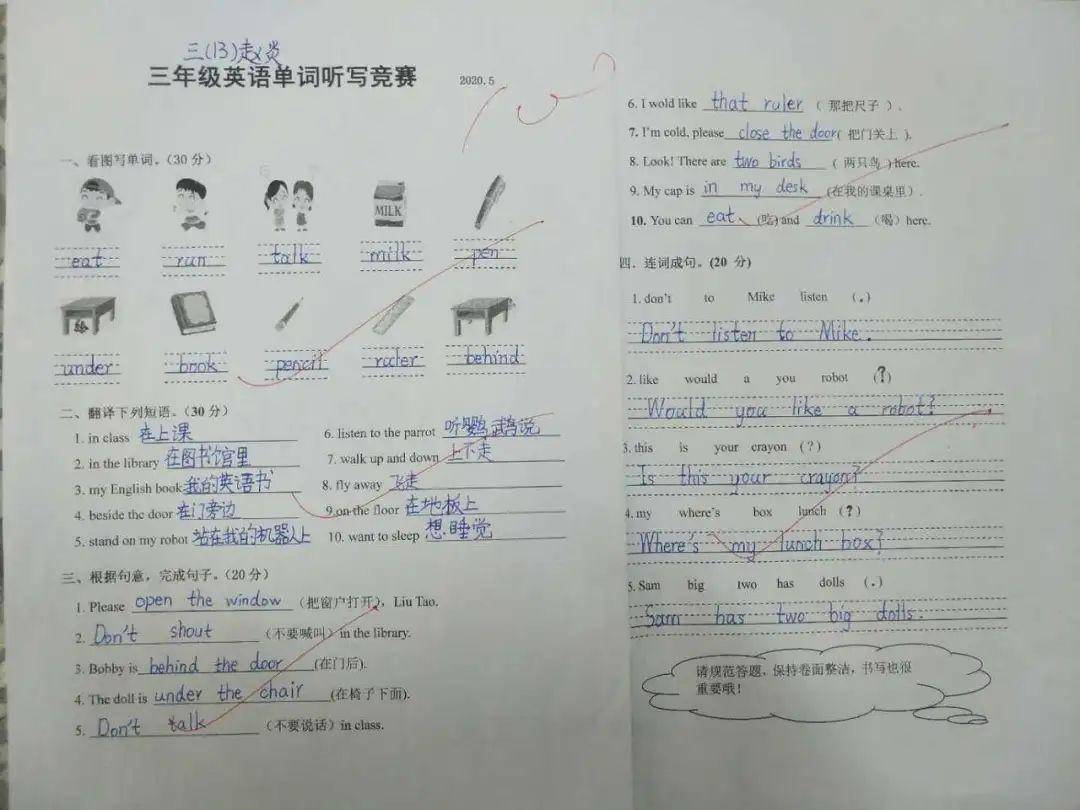 三(13)赵炎
三年级英语单词听写竞赛 2020.5
100
一、看图写单词。(30 分)
MILK
eat run talk milk pen
under book pencil ruler behind
二、翻译下列短语。(30 分)
1. in class 在上课
2. in the library 在图书馆里
3. my English book 我的英语书
4. beside the door 在门旁边
5. stand on my robot 站在我的机器人上
6. listen to the parrot 听鹦鹉说
7. walk up and down 上下走
8. fly away 飞走
9.on the floor 在地板上
10. want to sleep 想睡觉
三、根据句意，完成句子。(20 分)
1. Please open the window (把窗户打开), Liu Tao.
2. Don't shout (不要喊叫) in the library.
3. Bobby is behind the door (在门后).
4. The doll is under the chair (在椅子下面).
5. Don't talk (不要说话) in class.
6. I wold like that ruler ( 那把尺子 ) .
7. I'm cold, please close the door ( 把门关上 ).
8. Look! There are two birds ( 两只鸟 ) here.
9. My cap is in my desk (在我的课桌里) .
10. You can eat (吃) and drink (喝) here.
四．连词成句。(20 分)
1. don't to Mike listen (.)
Don't listen to Mike.
2. like would a you robot (?)
Would you like a robot?
3. this is your crayon (?)
Is this your crayon?
4. my where's box lunch (?)
Where's my lunch box?
5. Sam big two has dolls (.)
Sam has two big dolls.
请规范答题，保持卷面整洁，书写也很
重要哦!